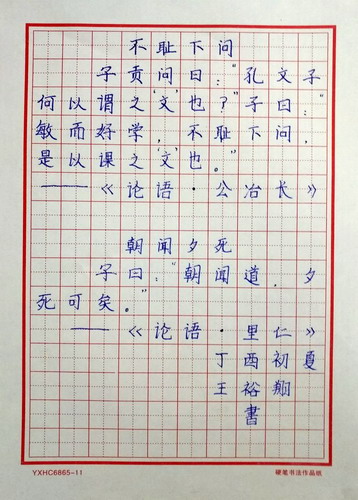 不耻下问
子贡问曰：“孔文子
何以谓之‘文’也？”子曰：“
敏而好学，不耻下问，
是以谓之‘文’也。”
——《论语·公冶长》
朝闻夕死
子曰：“朝闻道，夕
死可矣。”
——《论语·里仁》
丁酉初夏
王裕翔
書
YXHC6865-11
硬笔书法作品纸